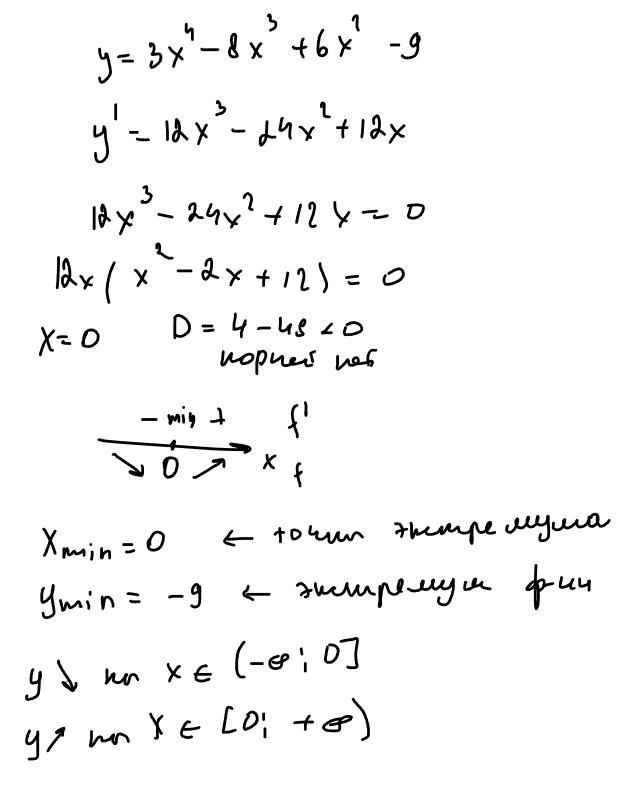 y = 3x⁴ - 8x³ + 6x² - 9
y' = 12x³ - 24x² + 12x
12x³ - 24x² + 12x = 0
12x ( x² - 2x + 12 ) = 0
x = 0 D = 4 - 48 < 0
корней нет
- min + f'
↘ 0 ↗ x f
xmin = 0 ← точки экстремума
ymin = -9 ← экстремум фии
y ↘ на x ∈ (-∞; 0]
y ↗ на x ∈ [0; +∞)